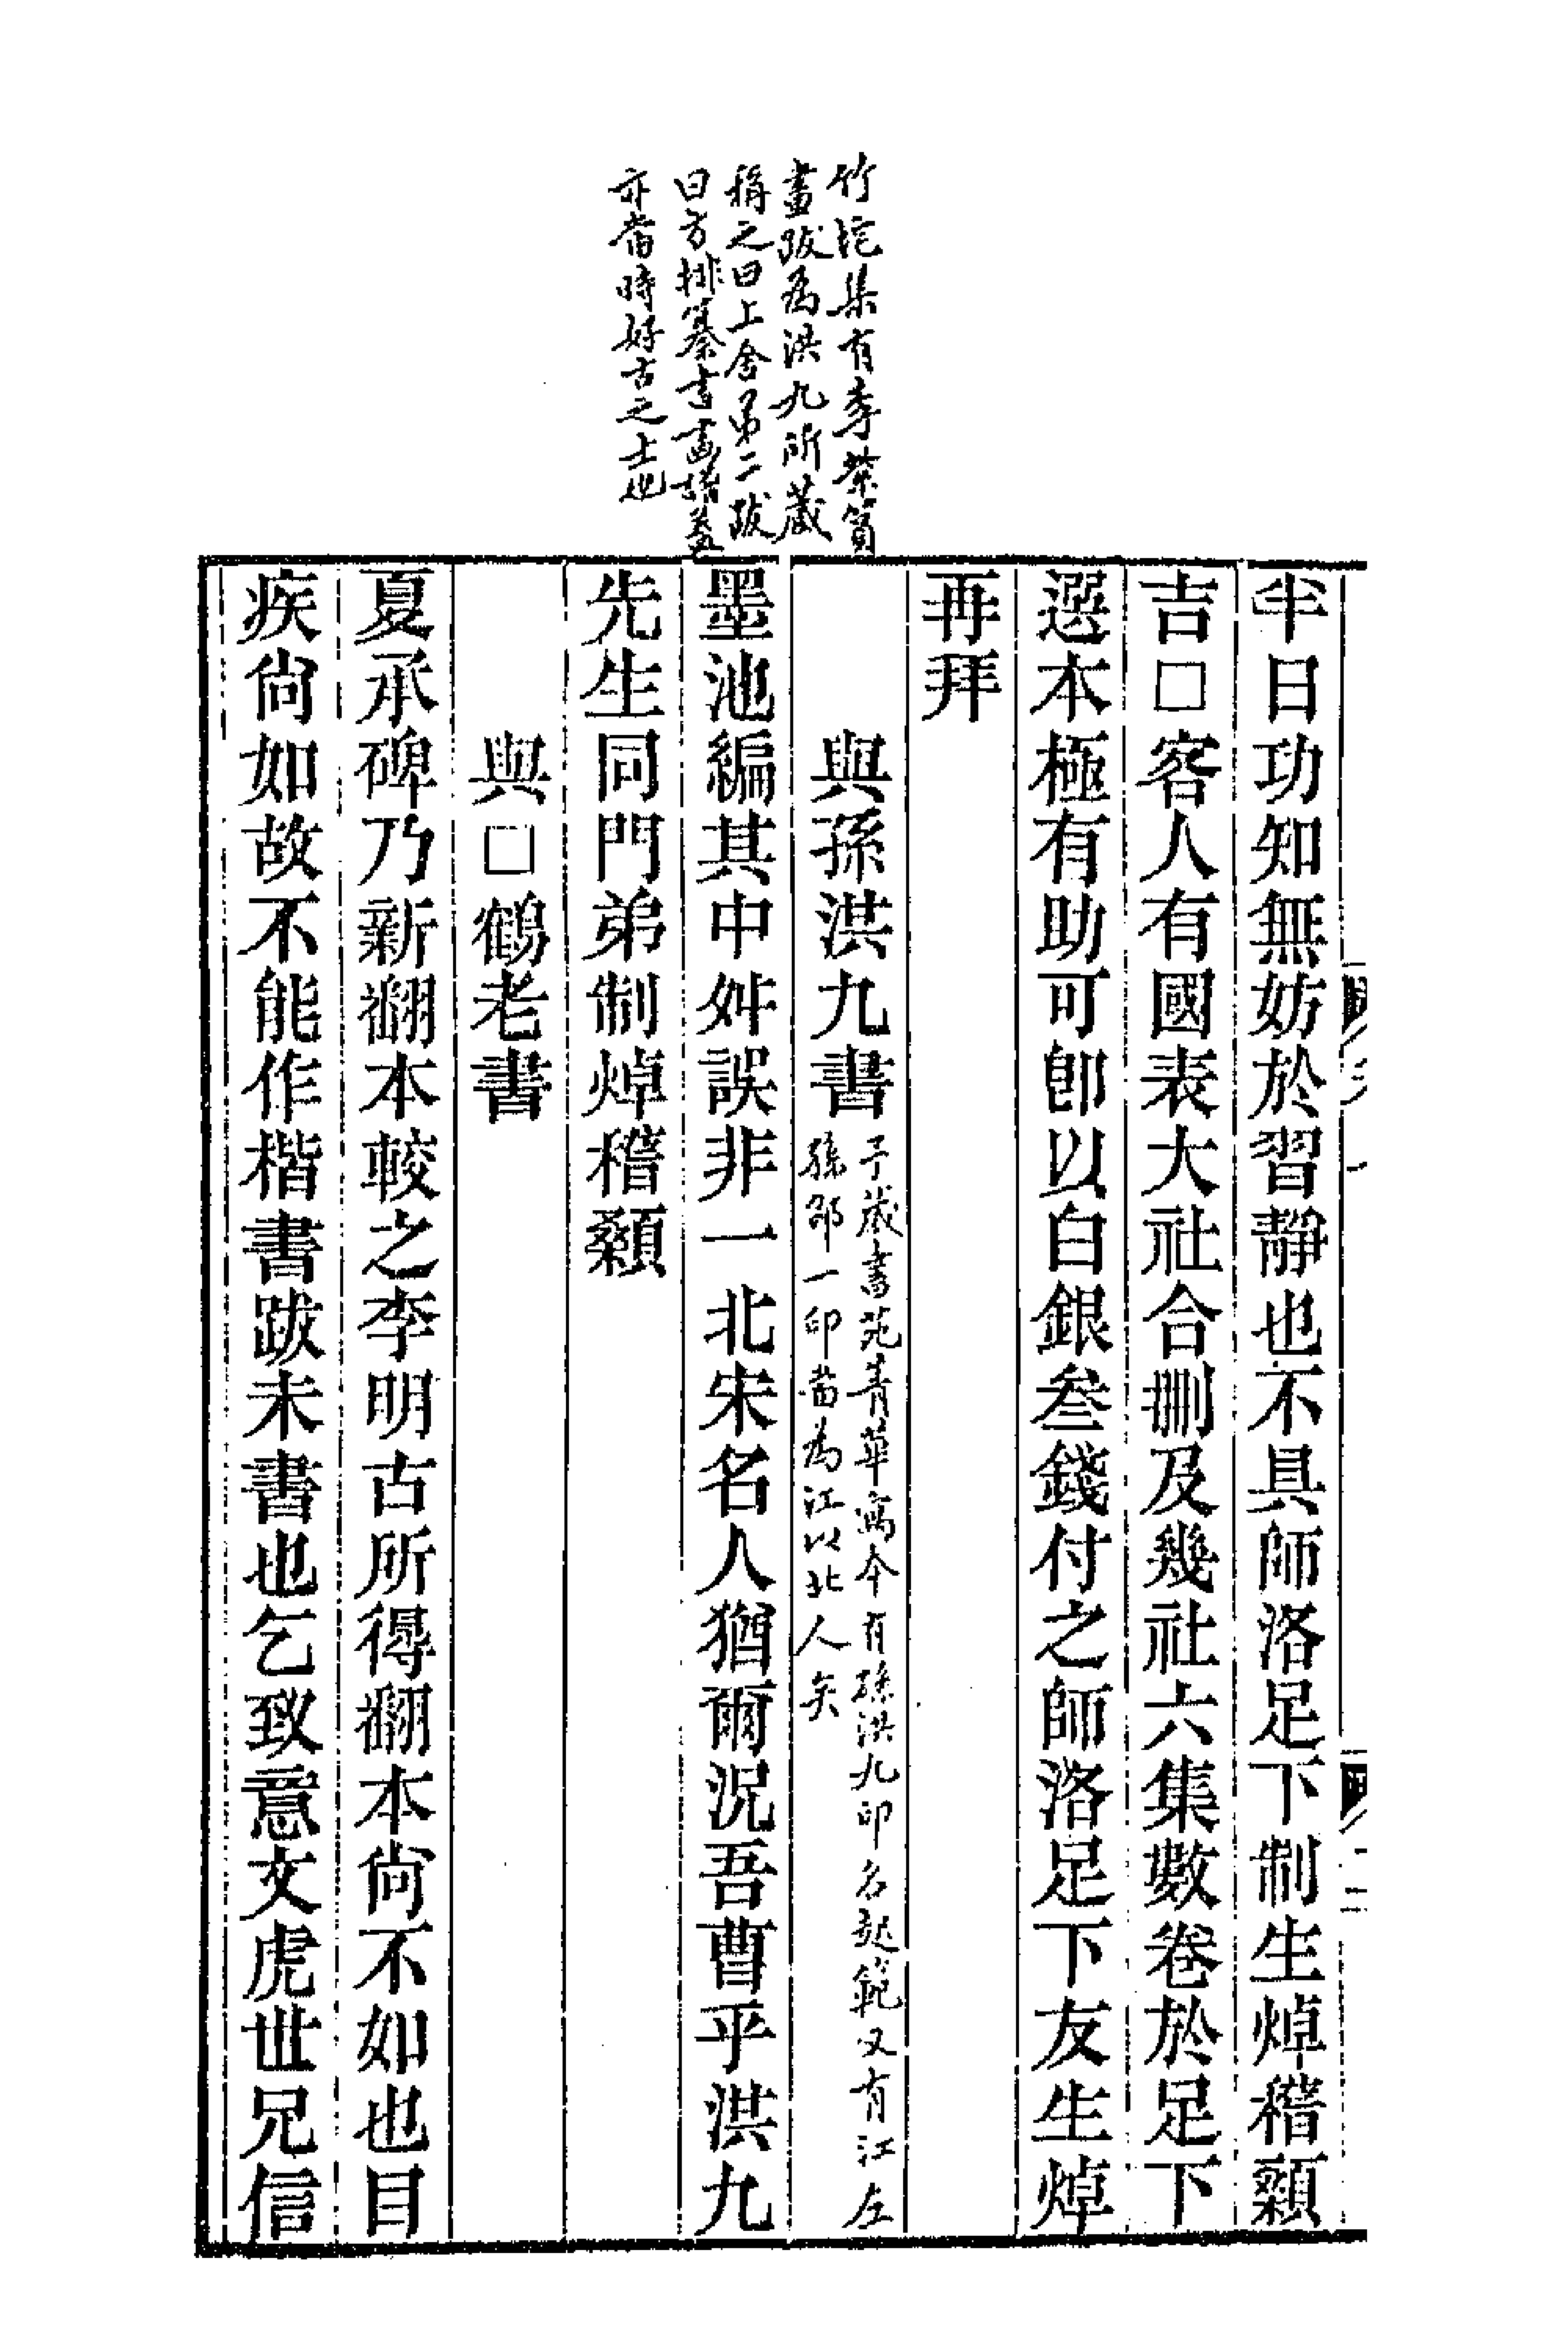 竹垞集有李紫篔
畫跋為洪九所蔵
稱之曰上舍第二跋
曰方排纂書畫譜蓋
亦當時好古之士也
半日功知無妨於習靜也不具師洛足下制生焯稽顙
吉□客人有國表大社合刪及幾社六集數卷於足下
選本極有助可卽以白銀叁錢付之師洛足下友生焯
再拜
與孫洪九書
子蔵書苑菁華寫本有孫洪九印名起範又有江左
孫郎一印當為江以北人矣
墨池編其中舛誤非一北宋名人猶爾況吾曹乎洪九
先生同門弟制焯稽顙
與□鶴老書
夏承碑乃新翻本較之李明古所得翻本尙不如也目
疾尙如故不能作楷書跋未書也乞致意文虎世兄信